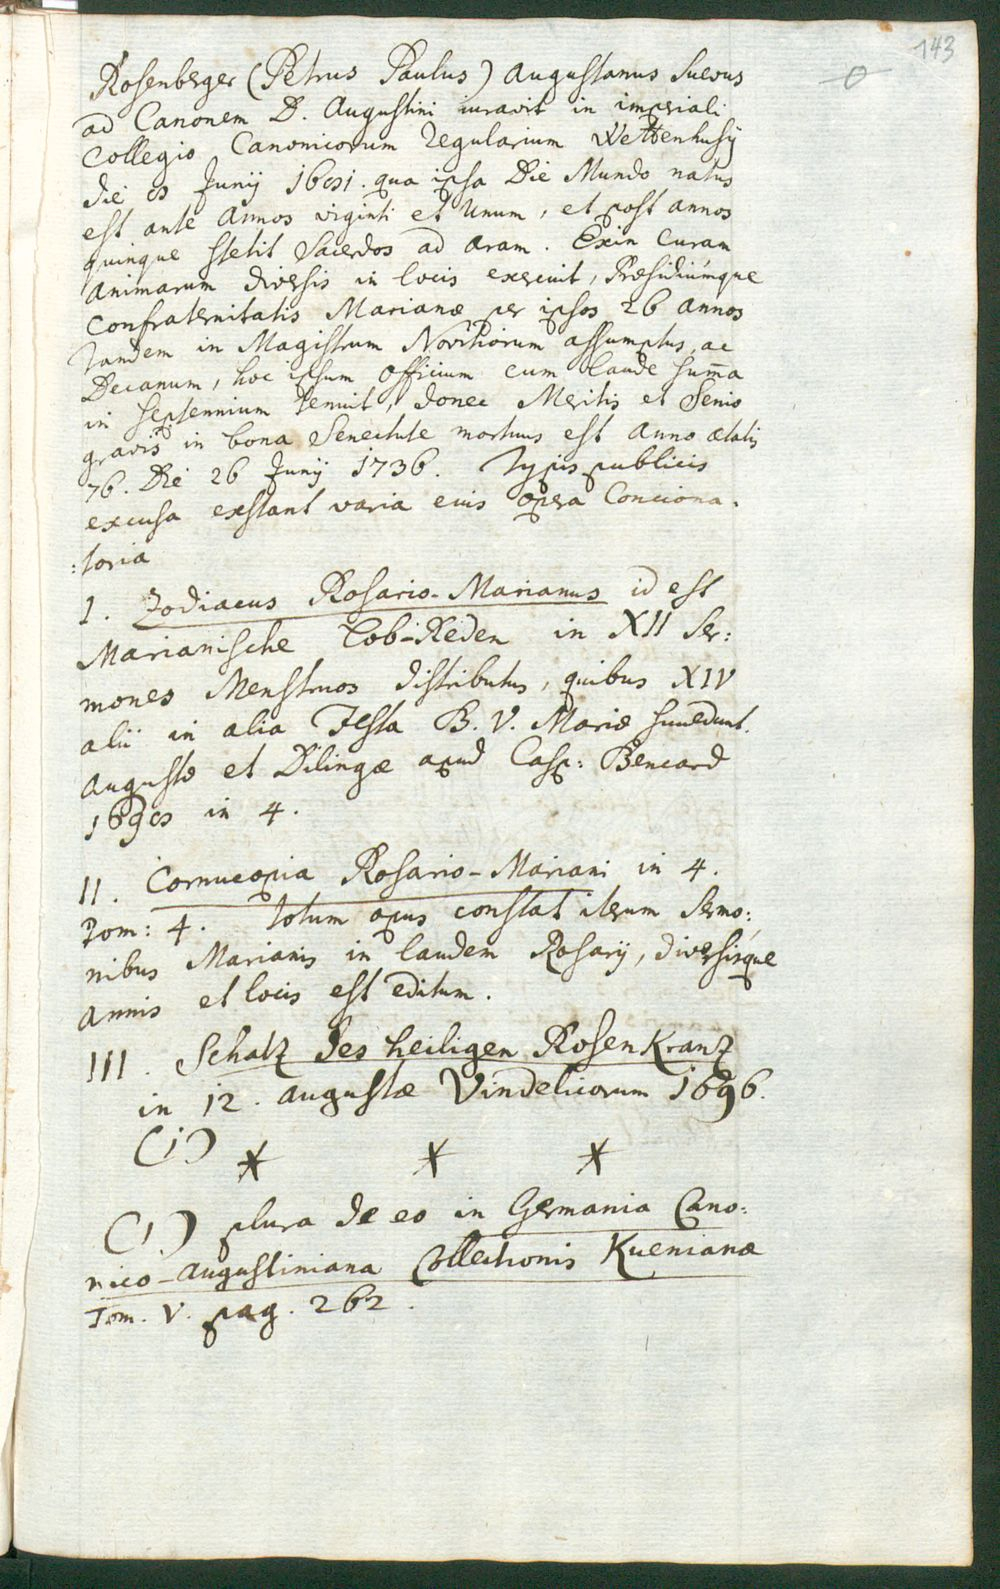 143
Rosenberger (Petrus Paulus) Augustanus Suevus
ad Canonem D. Augustini iuravit in imperiali
Collegio Canonicorum Regularium Wettenhusij
die 8 Junij 1681. qua ipsa Die Mundo natus
est ante Annos viginti et Unum, et post annos
quinque stetit Sacerdos ad aram. Exin Curam
Animarum diversis in locis exercuit, Præsidiúmque
Confraternitatis Marianæ per ipsos 26 annos
tandem in Magistrum Novitiorum assumptus, ac
Decanum, hoc ipsum Officium cum laude sum̄a
in septennium tenuit, donec Meritis et Senio
gravis in bona Senectute mortuus est Anno ætatis
76. Die 26 Junij 1736. Typis publicis
excusa exstant varia eius opera Conciona-
:toria
I. Zodiacus Rosario-Marianus id est
Marianische Lob-Reden in XII Ser:
mones Menstruos distributus, quibus XIV
alii in alia Festa B. V. Mariæ succedunt.
Augustæ et Dilingæ apud Casp: Bencard
1698 in 4.
II. Cornucopia Rosario-Mariani in 4.
Tom: 4. totum opus constat iterum Sermo:
nibus Marianis in laudem Rosarij, diversisque
annis et locis est editum.
III. Schatz des heiligen RosenKranz
in 12. augustæ Vindelicorum 1696.
(1)
* * *
(1) plura de eo in Germania Cano:
nico-Augustiniana Collectionis Kuenianæ
Tom. V. pag. 262.